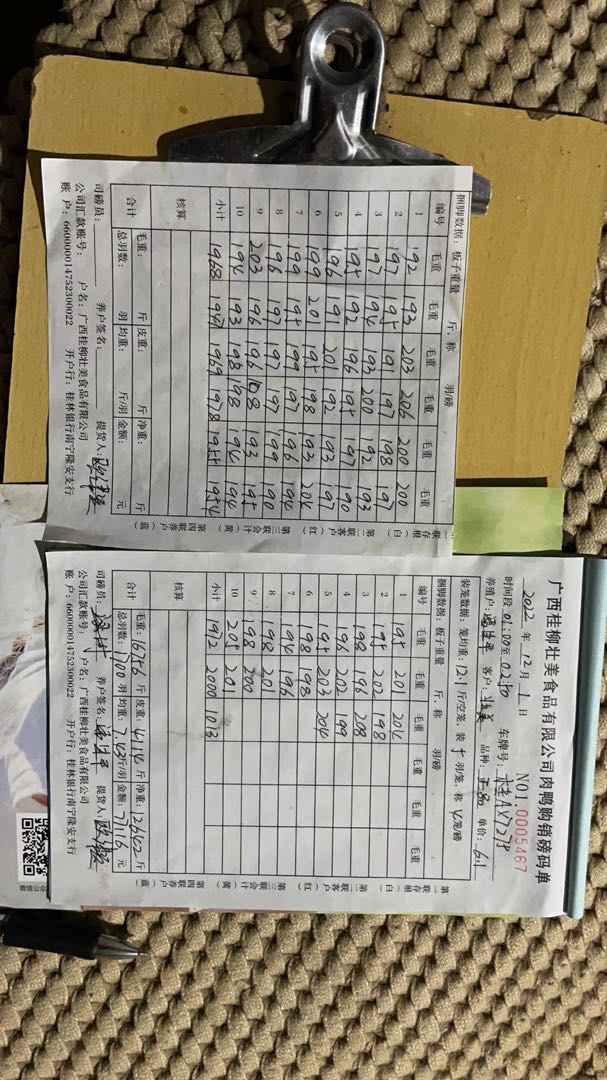 广西桂柳壮美食品有限公司肉鸭购销磅码单
NO1.0005467
2022 年 12 月 1 日
时间段 01:00至02:50 车牌号:
养殖户: 客户: 壮美 品种: 正品 单价: 6.1
装笼数据: 笼均重: 12.1 斤/空笼, 装 5 羽/笼, 称 4 笼/磅
捆脚数据: 板子重量 斤, 称 羽/磅
编号 毛重 毛重 毛重 毛重 毛重 毛重
1 195 201 204
2 195 202 198
3 198 196 208
4 196 202 199
5 195 203 204
6 198 198
7 194 196
8 198 201
9 198 200
10 205 201
小计 1972 2000 1013
核算
合计 毛重: 16756 斤 皮重: 4114 斤 净重: 12642 斤
总羽数: 1700 羽 均重: 7.43 斤/羽 金额: 77116 元
司磅员: 养户签名: 提货人:
公司汇款账号: 户名: 广西桂柳壮美食品有限公司
账 户: 660000014752300022 开户行: 桂林银行南宁隆安支行
第一联存根(白) 第二联客户(红) 第三联会计(黄) 第四联养户(蓝)
捆脚数据: 板子重量 斤, 称 羽/磅
编号 毛重 毛重 毛重 毛重 毛重 毛重
1 192 193 203 206 200 200
2 197 195 191 197 198 197
3 197 194 193 200 192 193
4 195 192 196 195 197 190
5 196 191 201 192 193 197
6 199 201 195 198 193 204
7 199 195 199 197 196 194
8 196 197 197 197 199 190
9 203 196 196 198 193 195
10 194 193 198 198 194 194
小计 1968 1947 1969 1978 1955 1954
核算
合计 毛重: 斤 皮重: 斤 净重: 斤
总羽数: 羽 均重: 斤/羽 金额: 元
司磅员: 养户签名: 提货人:
公司汇款账号: 户名: 广西桂柳壮美食品有限公司
账 户: 660000014752300022 开户行: 桂林银行南宁隆安支行
一联存根(白) 第二联客户(红) 第三联会计(黄) 第四联养户(蓝)